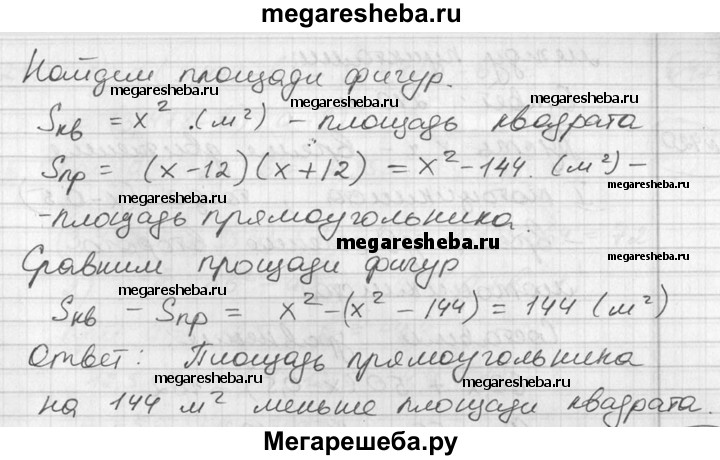 megaresheba.ru
Найдим площади фигур.
megaresheba.ru megaresheba.ru
Sкв = x² .(м²) – площадь квадрата
Sпр = (x-12)(x+12) = x²-144. (м²) –
megaresheba.ru
-площадь прямоугольника.
megaresheba.ru
Сравним прощади фигур
megaresheba.ru megaresheba.ru
Sкв - Sпр = x²-(x²-144) = 144 (м²)
Ответ: Площадь прямоугольника
megaresheba.ru megaresheba.ru
на 144 м² меньше площади квадрата.
Мегарешеба.ру